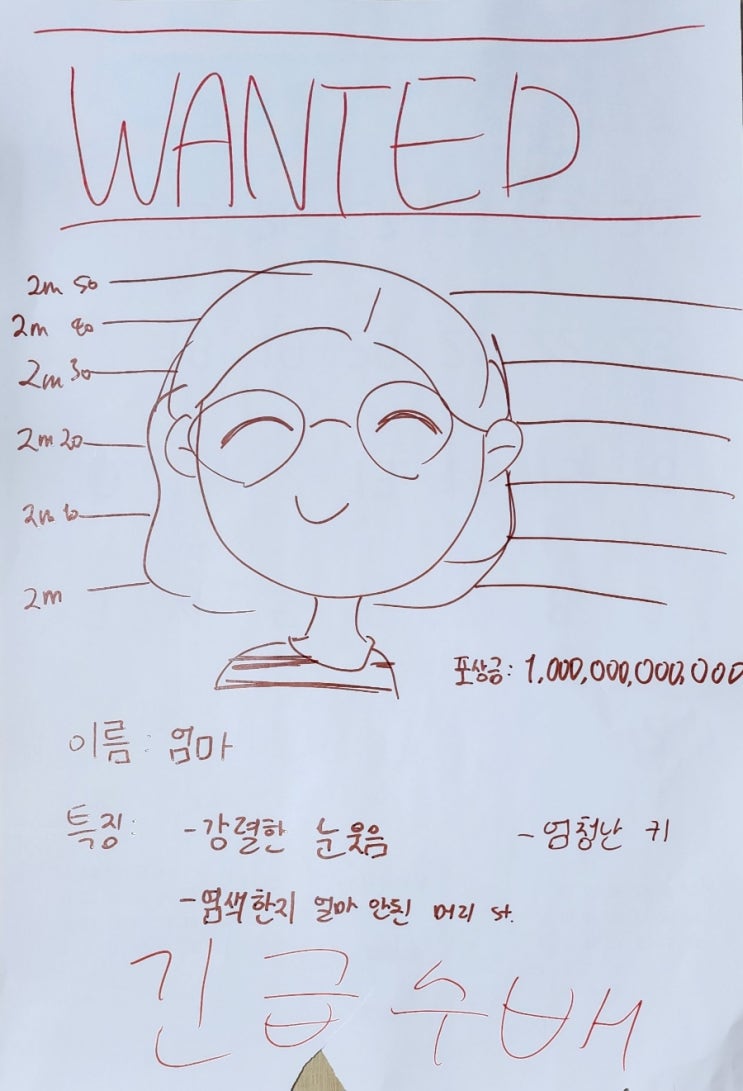 WANTED
2m 50
2m 40
2m 30
2m 20
2m 10
2m
포상금: 1,000,000,000,000
이름: 엄마
특징: -강렬한 눈웃음 -엄청난 키
-염색한지 얼마 안된 머리 st.
긴급수배